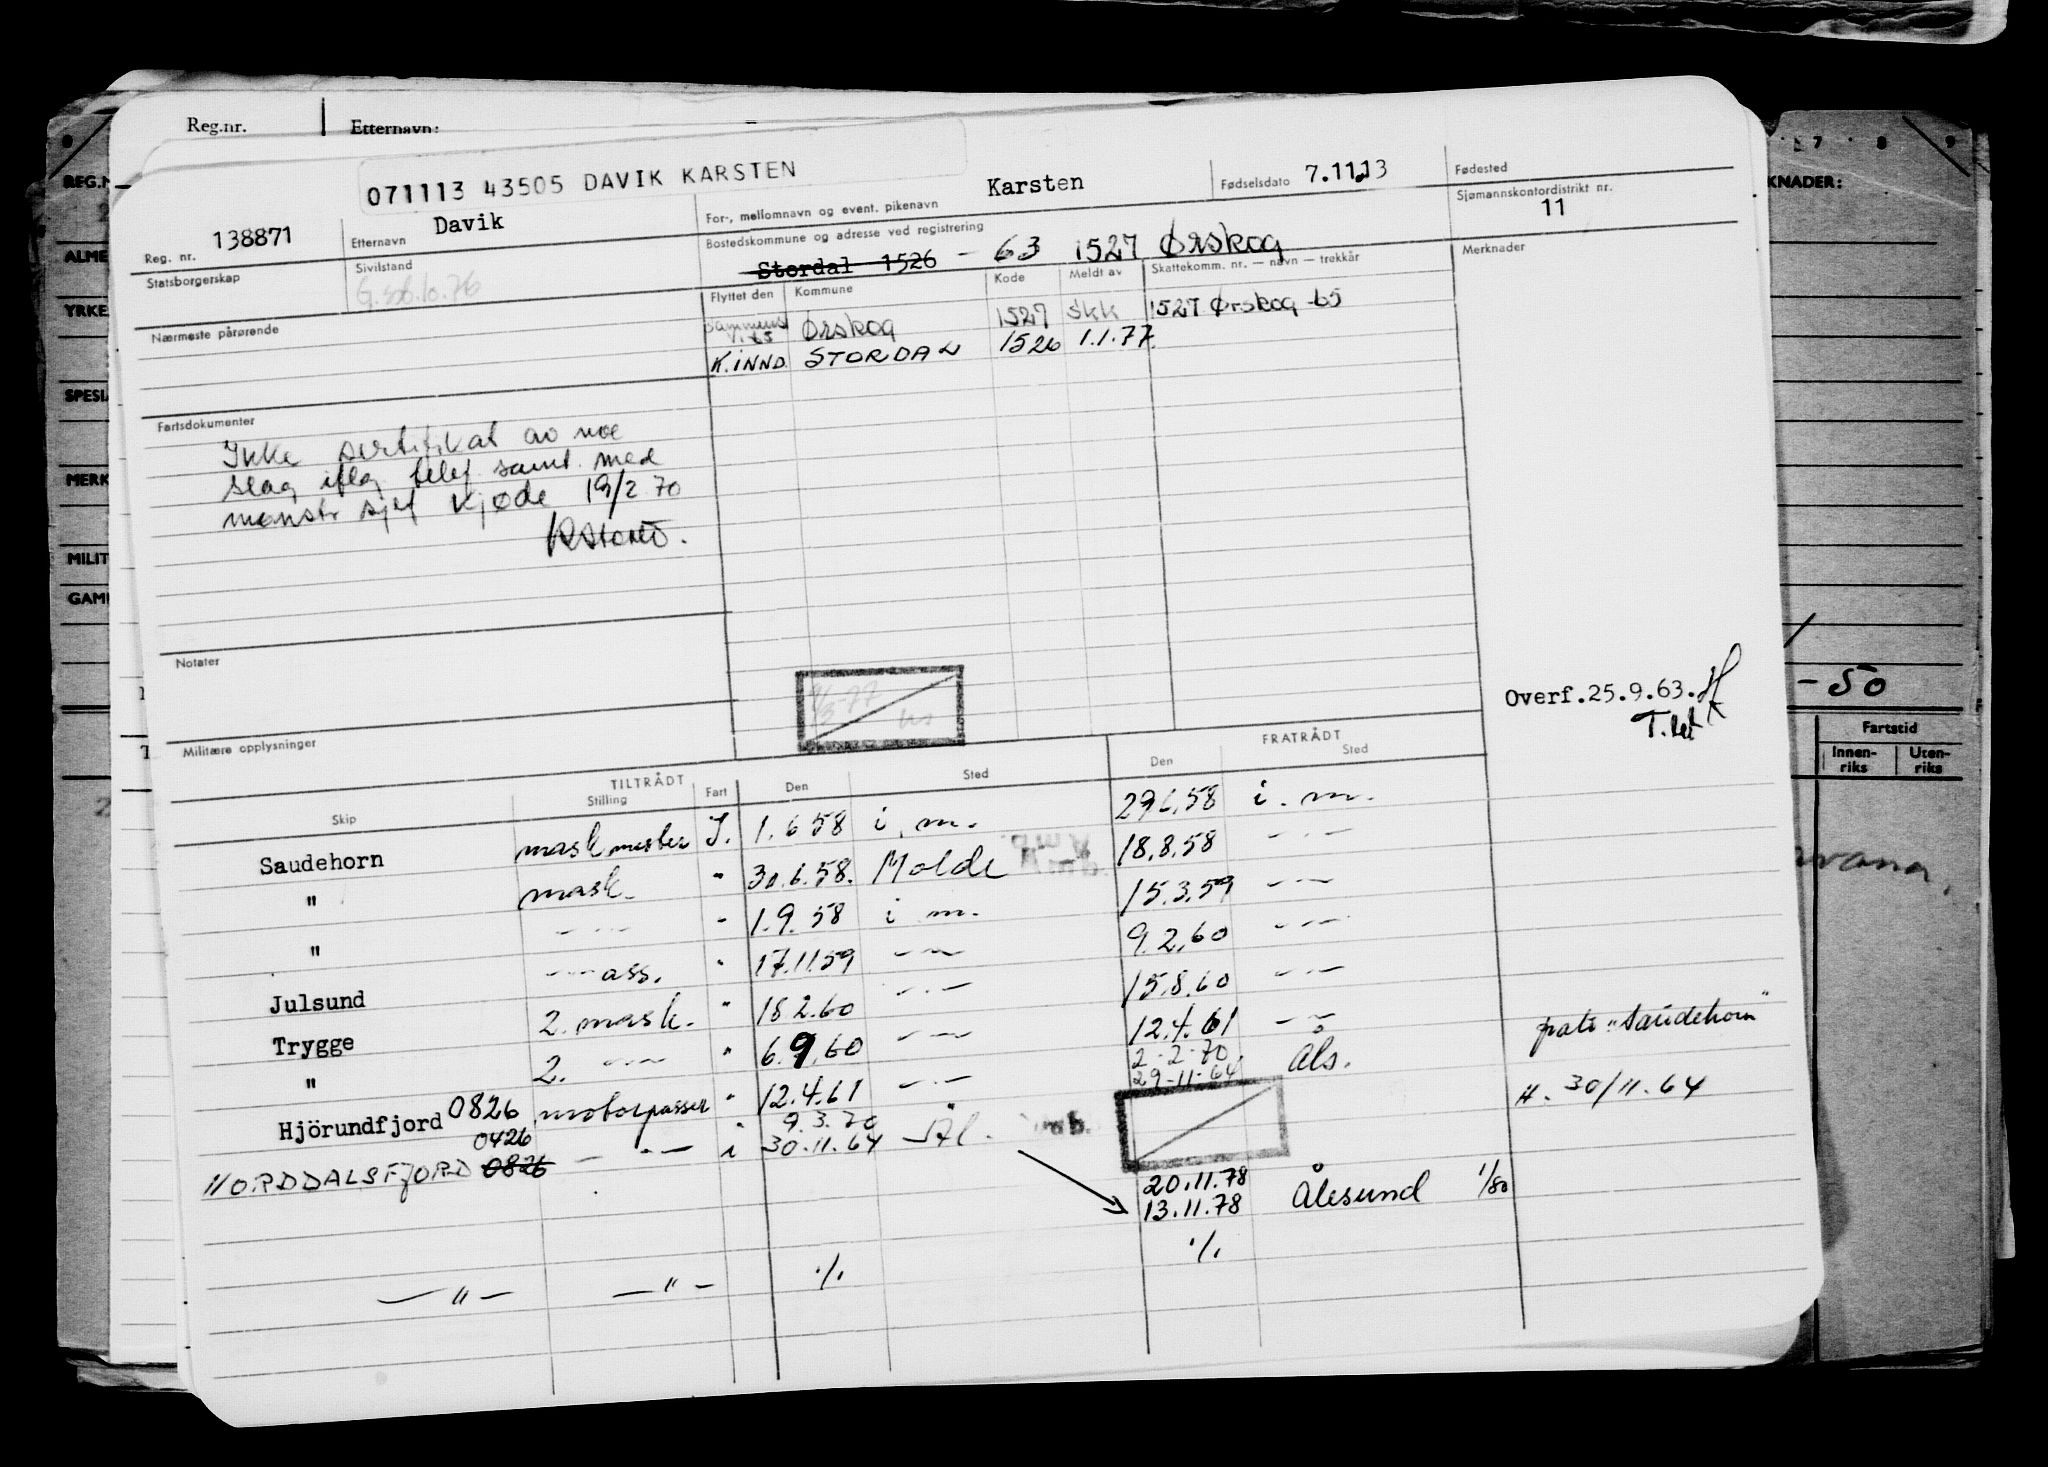 Reg.nr. Etternavn:
071113 43505 DAVIK KARSTEN
138871 Davik Karsten 7.11.13
Reg. nr. Etternavn For-, mellomnavn og event. pikenavn Fødselsdato Fødested
Statsborgerskap Sivilstand Bostedskommune og adresse ved registrering Sjømannskontordistrikt nr.
11
G. 76
Stordal 1526 - 63 1527 Ørskog
Merknader
Nærmeste pårørende
Flyttet den Kommune Kode Meldt av Skattekomm. nr. — navn — trekkår
Ørskog 1527 skk 1527 Ørskog -65
K.INND. STORDAL 1526 1.1.77.
Fartsdokumenter
Ikke sertifikat av noe
slag iflg telef. samt. med
mønstr sjef Kjøde 19/2 70
Notater
Overf.25.9.63.
Militære opplysninger
TILTRÅDT FRATRÅDT
Skip Stilling Fart Den Sted Den Sted
Saudehorn maskmester I. 1.6 58 i. m. 29.6.58 i. m.
" mask. " 30.6.58. Molde 18.8.58 — " —
" — " — " 1.9.58 i m. 15.3.59 — " —
Julsund — " — ass. " 17.11.59 — " — 9.2.60 — " —
Trygge 2. mask. " 18.2.60 — " — 15.8.60 — " —
" 2. — " — " 6.9.60 — " — 12.4.61 — " —
Hjörundfjord 0826 motorpasser " 12.4.61 — " — 2-2-70. 29-11-64 Åls.
"Saudehorn"
30/11.64
NORDDALSFJORD 0426 0826 — " — i 9.3.70 30.11.64 Ål.
20.11.78
13.11.78 Ålesund 1/80
— " — — " — ./. ./.
REG.N
ALME
YRKE
SPESIA
MERK
MILIT
GAM
7 8 9
KNADER:
-50
Fartstid
Innen-
riks
Uten-
riks